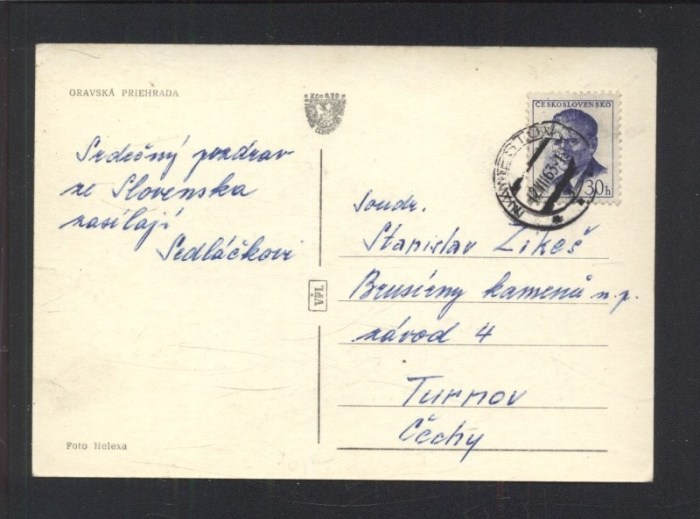 ORAVSKÁ PRIEHRADA
Srdečný pozdrav
ze Slovenska
zasílají
Sedláčkovi
Foto Helexa
ČESKOSLOVENSKO
30h
Soudr.
Stanislav Likeš
Brusírny kamenů n.p.
závod 4
Turnov
Čechy